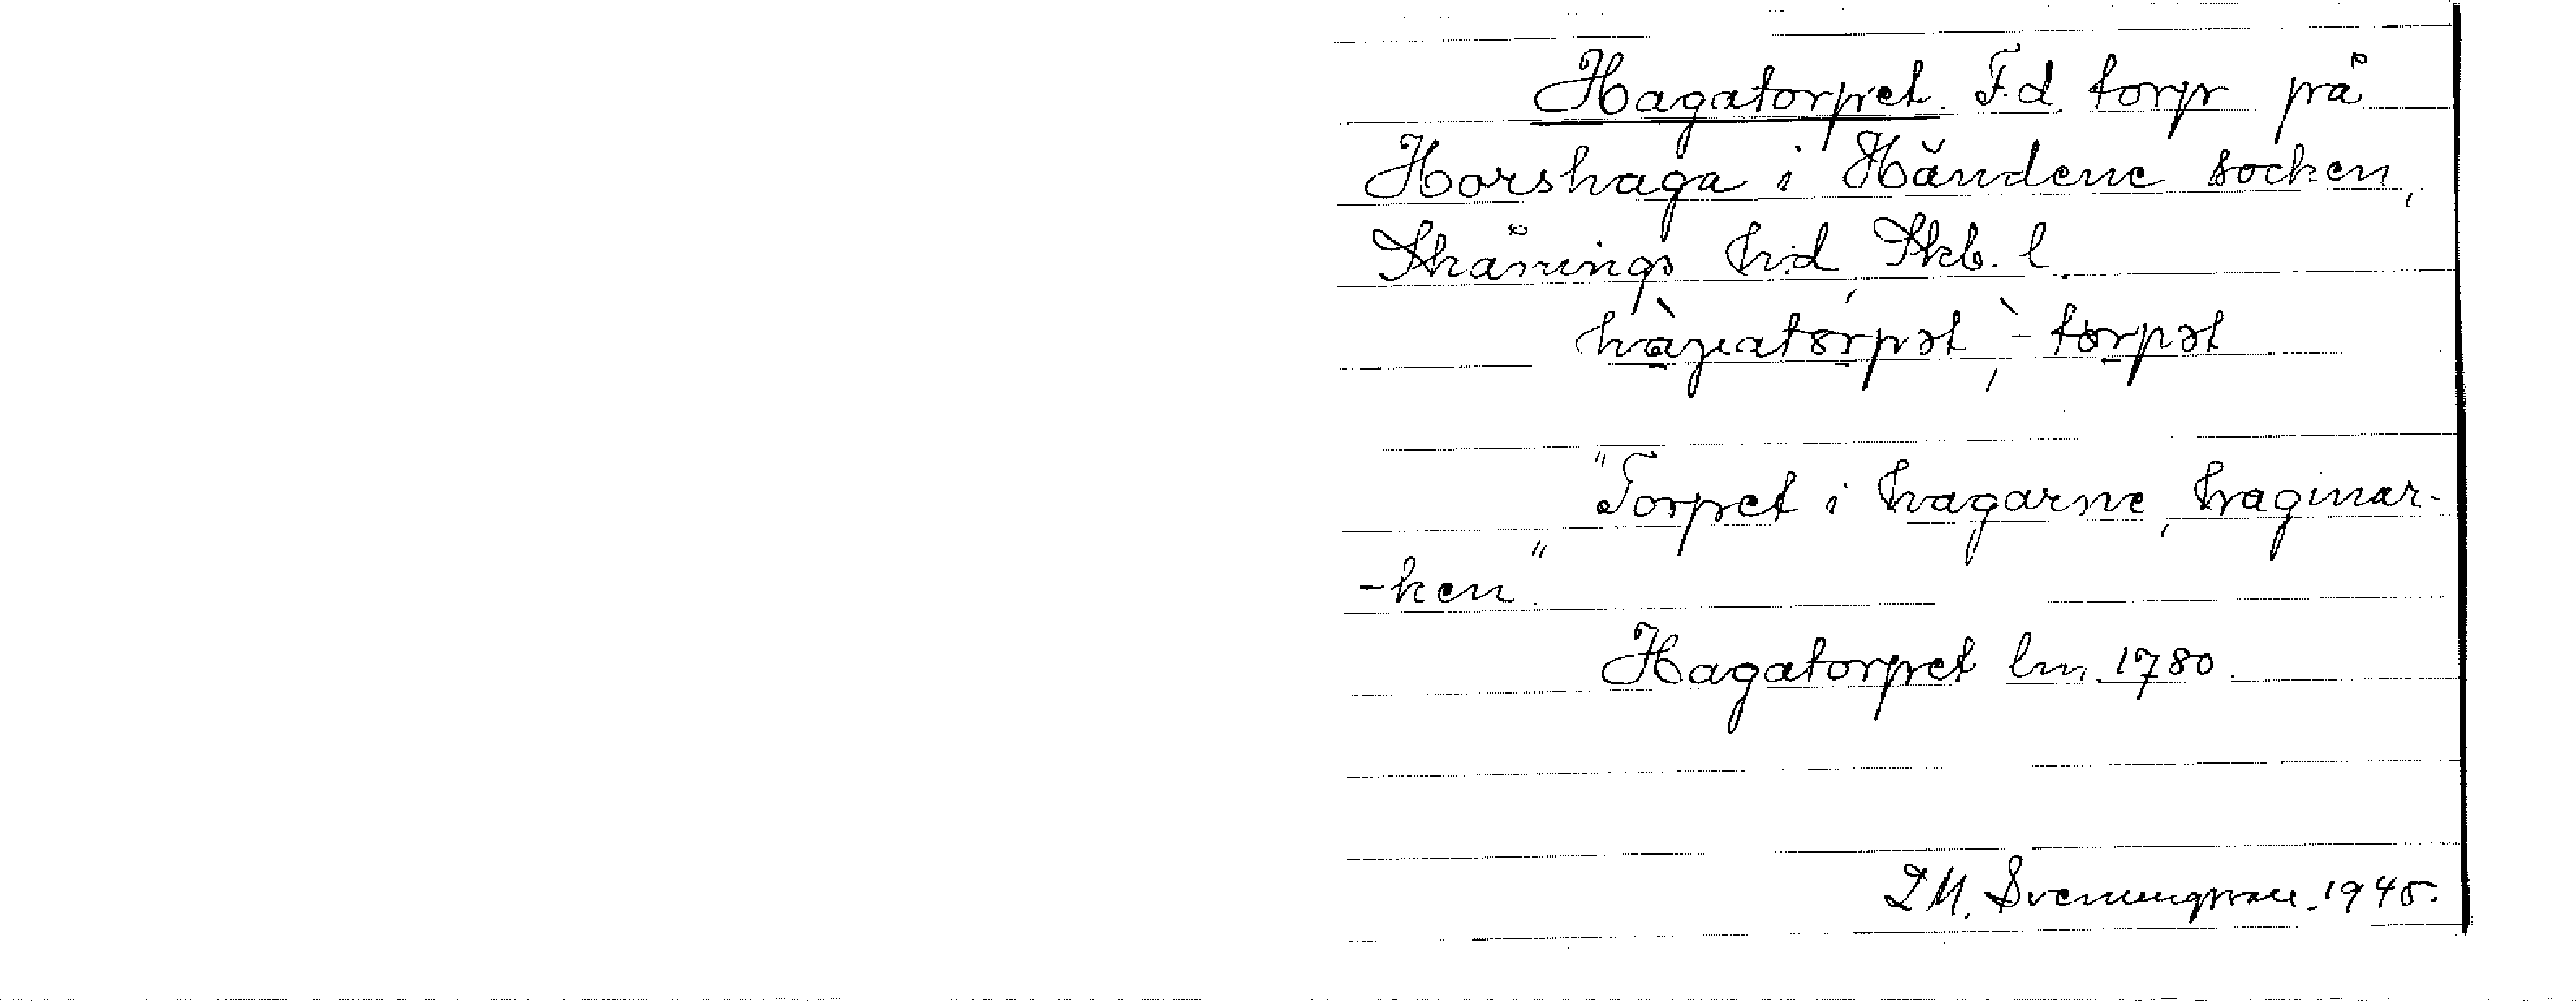 Hagatorpet. F.d. torp på
Horshaga i Händene socken,
Skånings hd, Skb. l.
"Torpet i hagarne, hagmar-
-ken."
Hagatorpet lm. 1780.
D.M. Svenungsson. 1945.